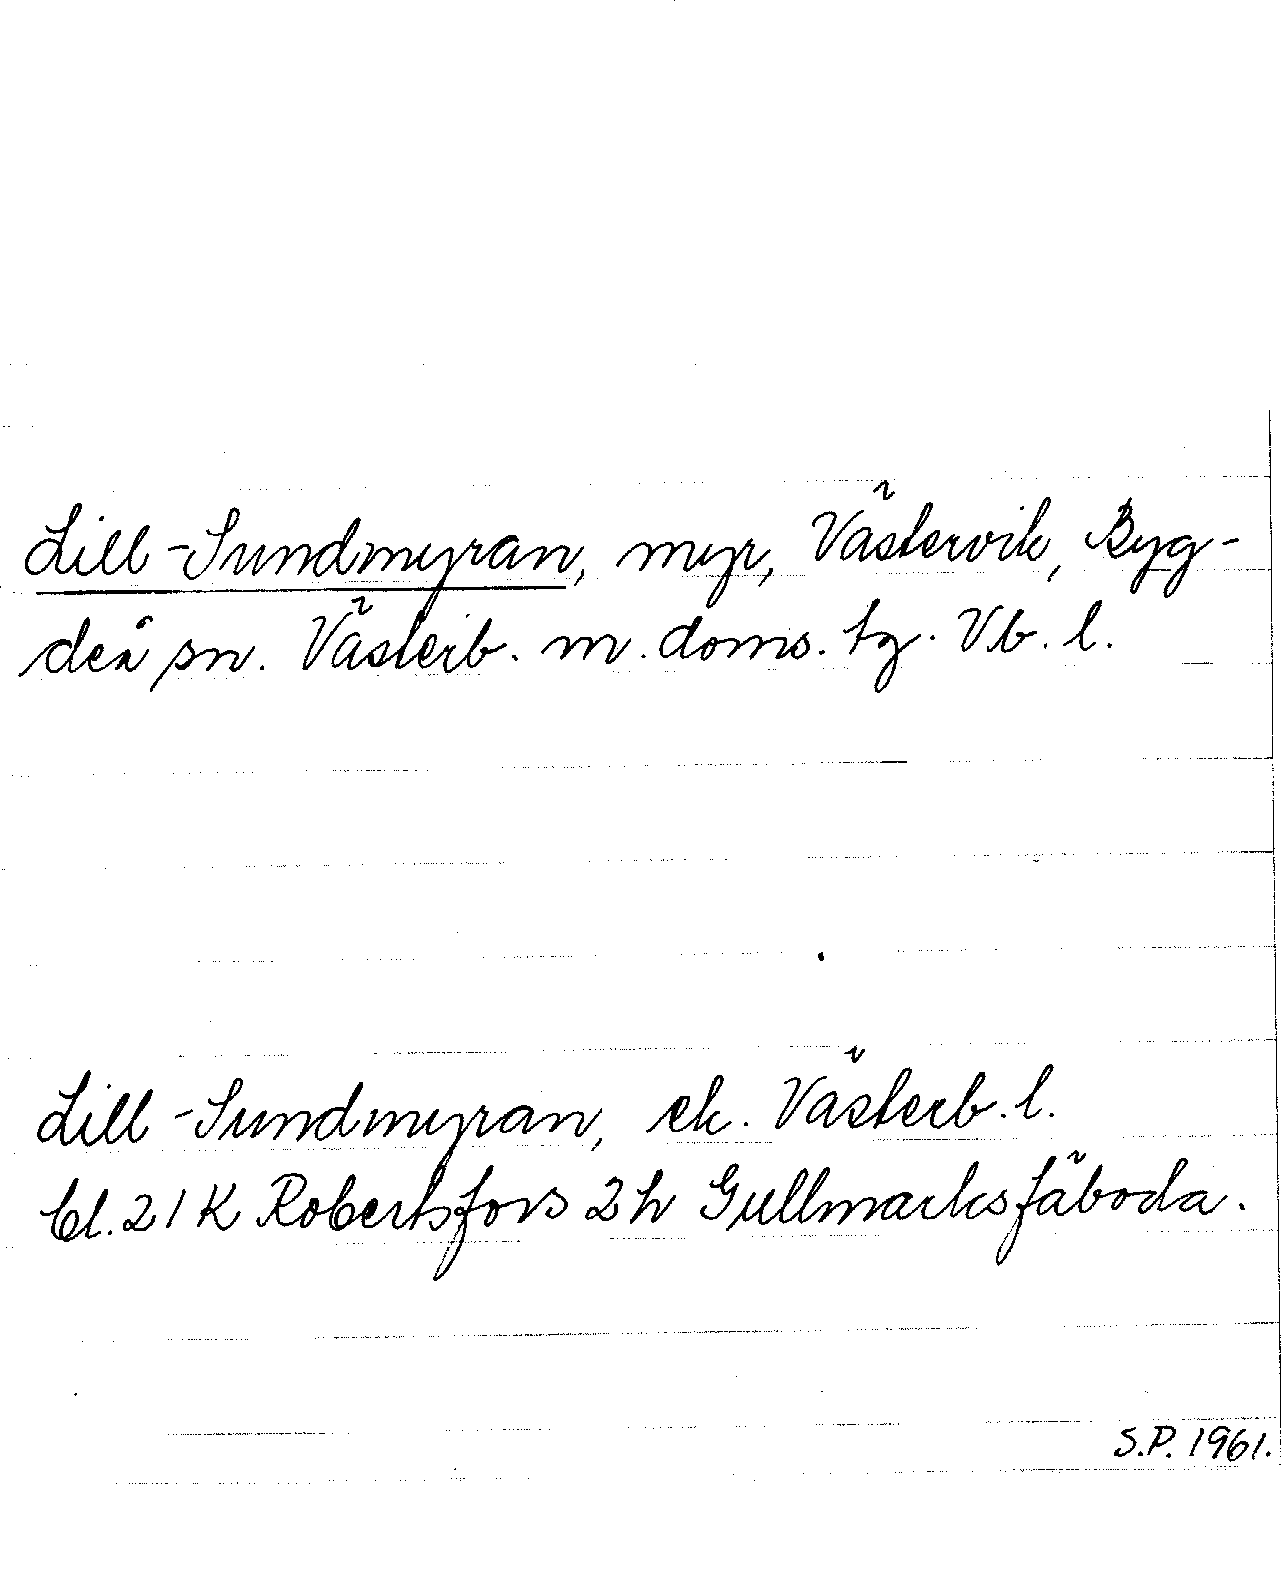 Lill-Sundmyran, myr, Västervik, Byg-
deå sn. Västerb. m. doms. tg. Vb. l.
Lill-Sundmyran, ek. Västerb. l.
bl. 21 K Robertsfors 2h Gullmarksfäboda.
S.P. 1961.